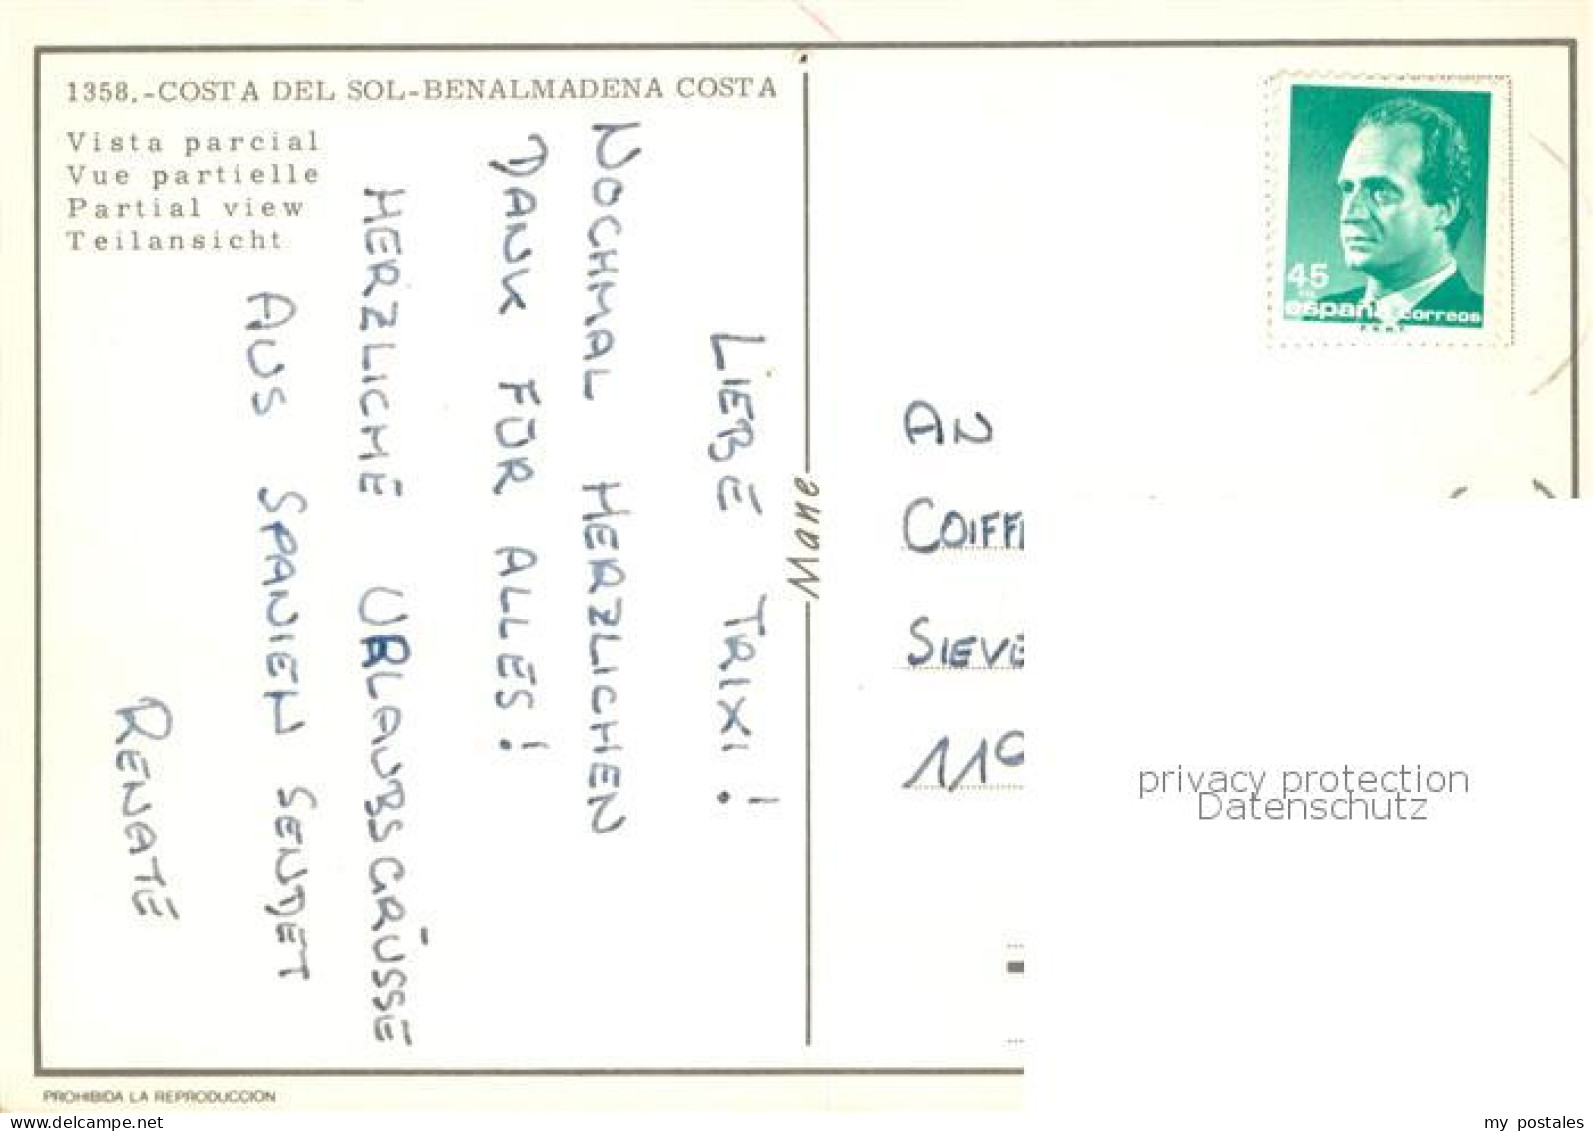 1358.-COSTA DEL SOL-BENALMADENA COSTA
Vista parcial
Vue partielle
Partial view
Teilansicht
LIEBE TRIXI!
NOCHMAL HERZLICHEN
DANK FÜR ALLES!
HERZLICHE URLAUBSGRÜSSE
AUS SPANIEN SENDET
RENATE
Mane
45
españa correos
AN
COIFF
SIEVE
privacy protection
Datenschutz
PROHIBIDA LA REPRODUCCION
www.delcampe.net
my postales